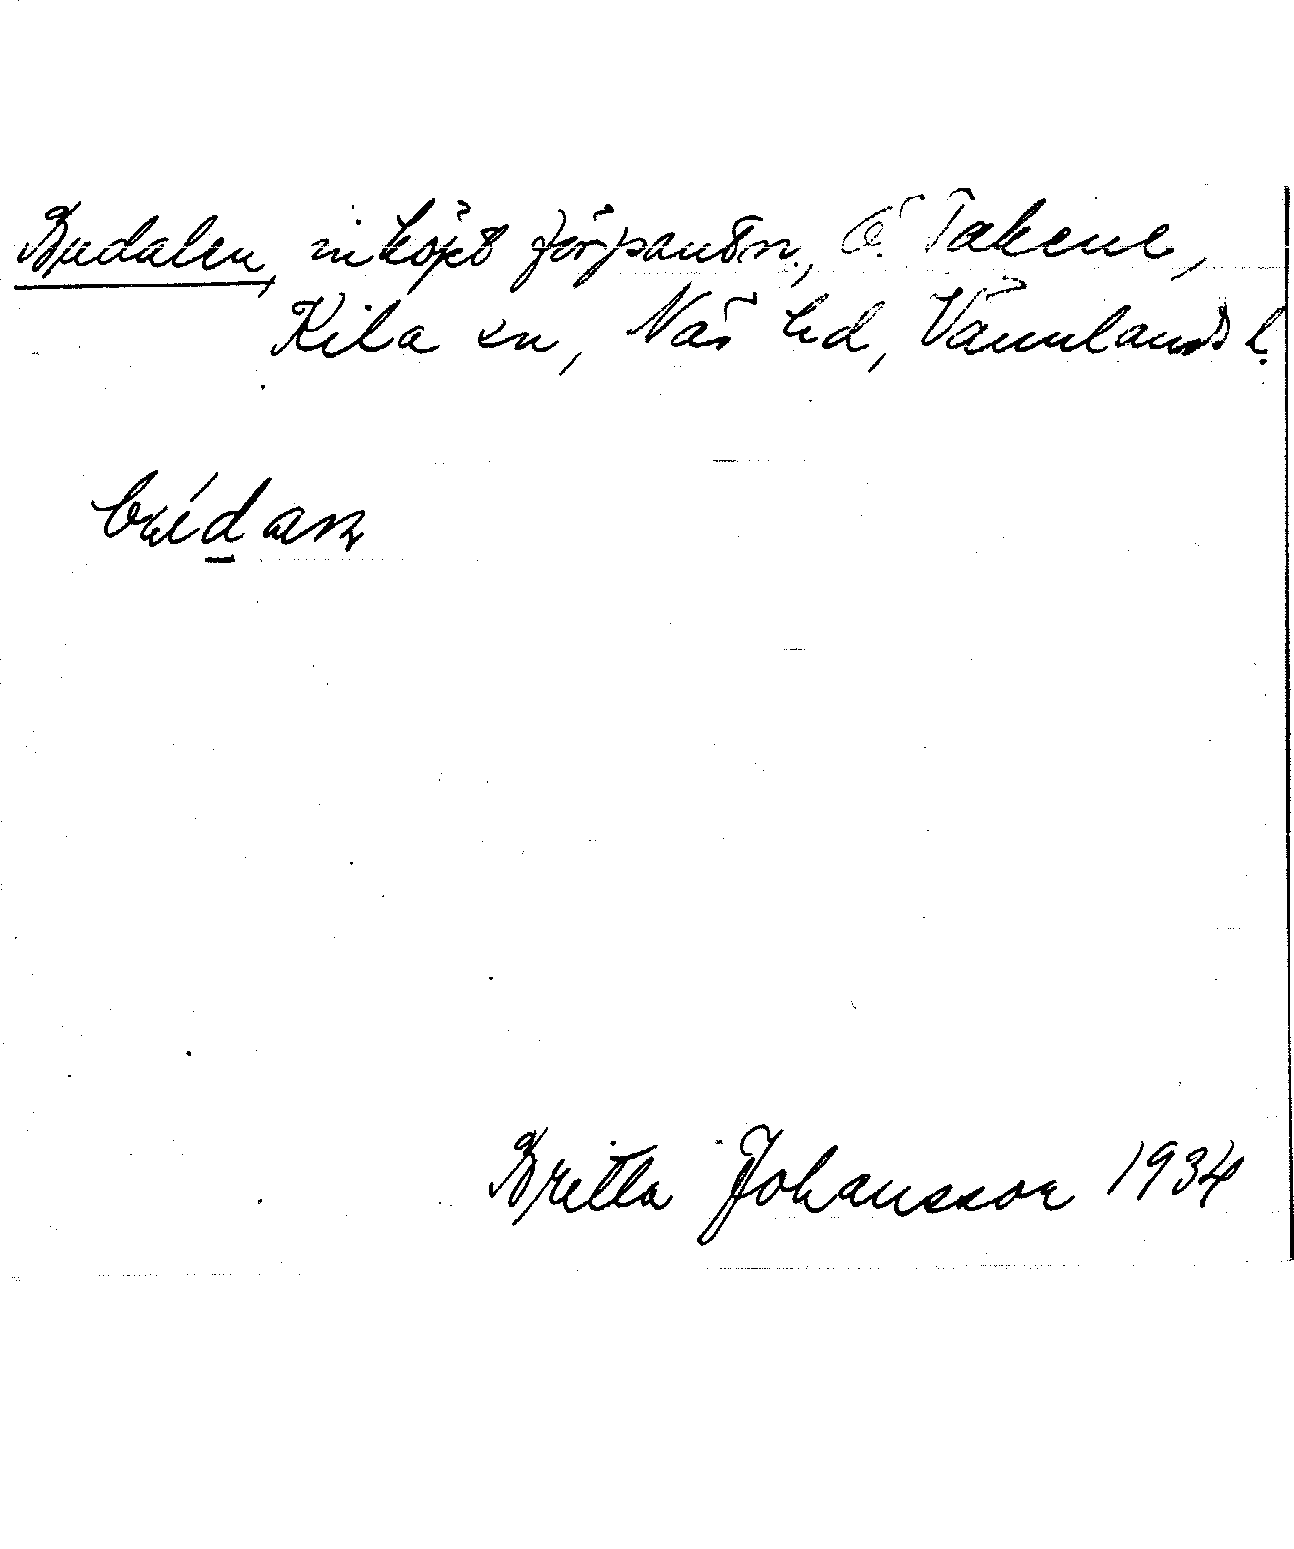 Bredalen, inköpt förpantn., Ö. Takene,
Kila sn, Näs hd, Värmlands l.
Britta Johansson 1934